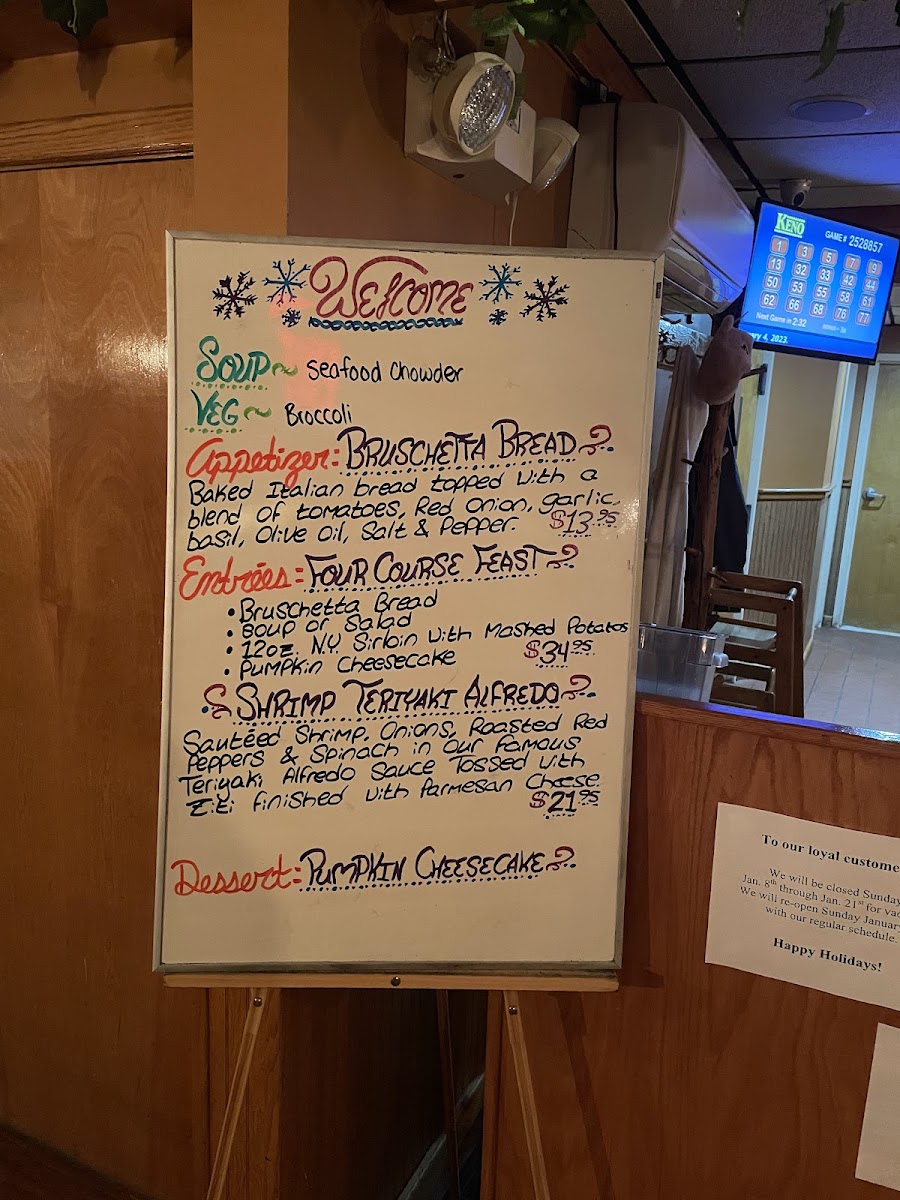 Welcome
Soup ~ Seafood Chowder
Veg ~ Broccoli
Appetizer: Bruschetta Bread
Baked Italian bread topped with a
blend of tomatoes, Red Onion, garlic,
basil, Olive Oil, Salt & Pepper. $13.95
Entrées: Four Course Feast
• Bruschetta Bread
• Soup or Salad
• 12oz. N.Y. Sirloin with Mashed Potatos
• Pumpkin Cheesecake $34.95
Shrimp Teriyaki Alfredo
Sautéed Shrimp, Onions, Roasted Red
Peppers & Spinach in our famous
Teriyaki Alfredo Sauce Tossed with
Ziti finished with Parmesan Cheese.
$21.95
Dessert: Pumpkin Cheesecake
KENO GAME# 2528857
1 3 5 7 9
13 32 33 42 44
50 53 55 58 61
62 66 68 76 77
Next Game in 2:32
ry 4, 2023.
To our loyal custome
We will be closed Sunday
Jan. 8th through Jan. 21st for vac
We will re-open Sunday January
with our regular schedule.
Happy Holidays!